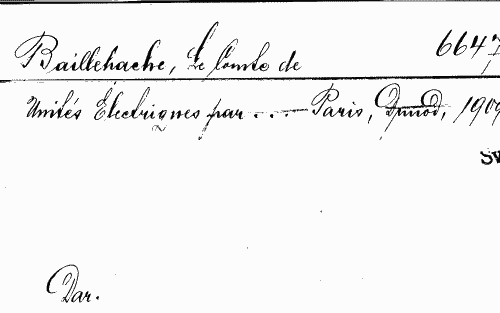 Baillehache, Le Comte de 6647
Unités Electriques par . . . — Paris, Dunod, 1909
Sv
Dar.